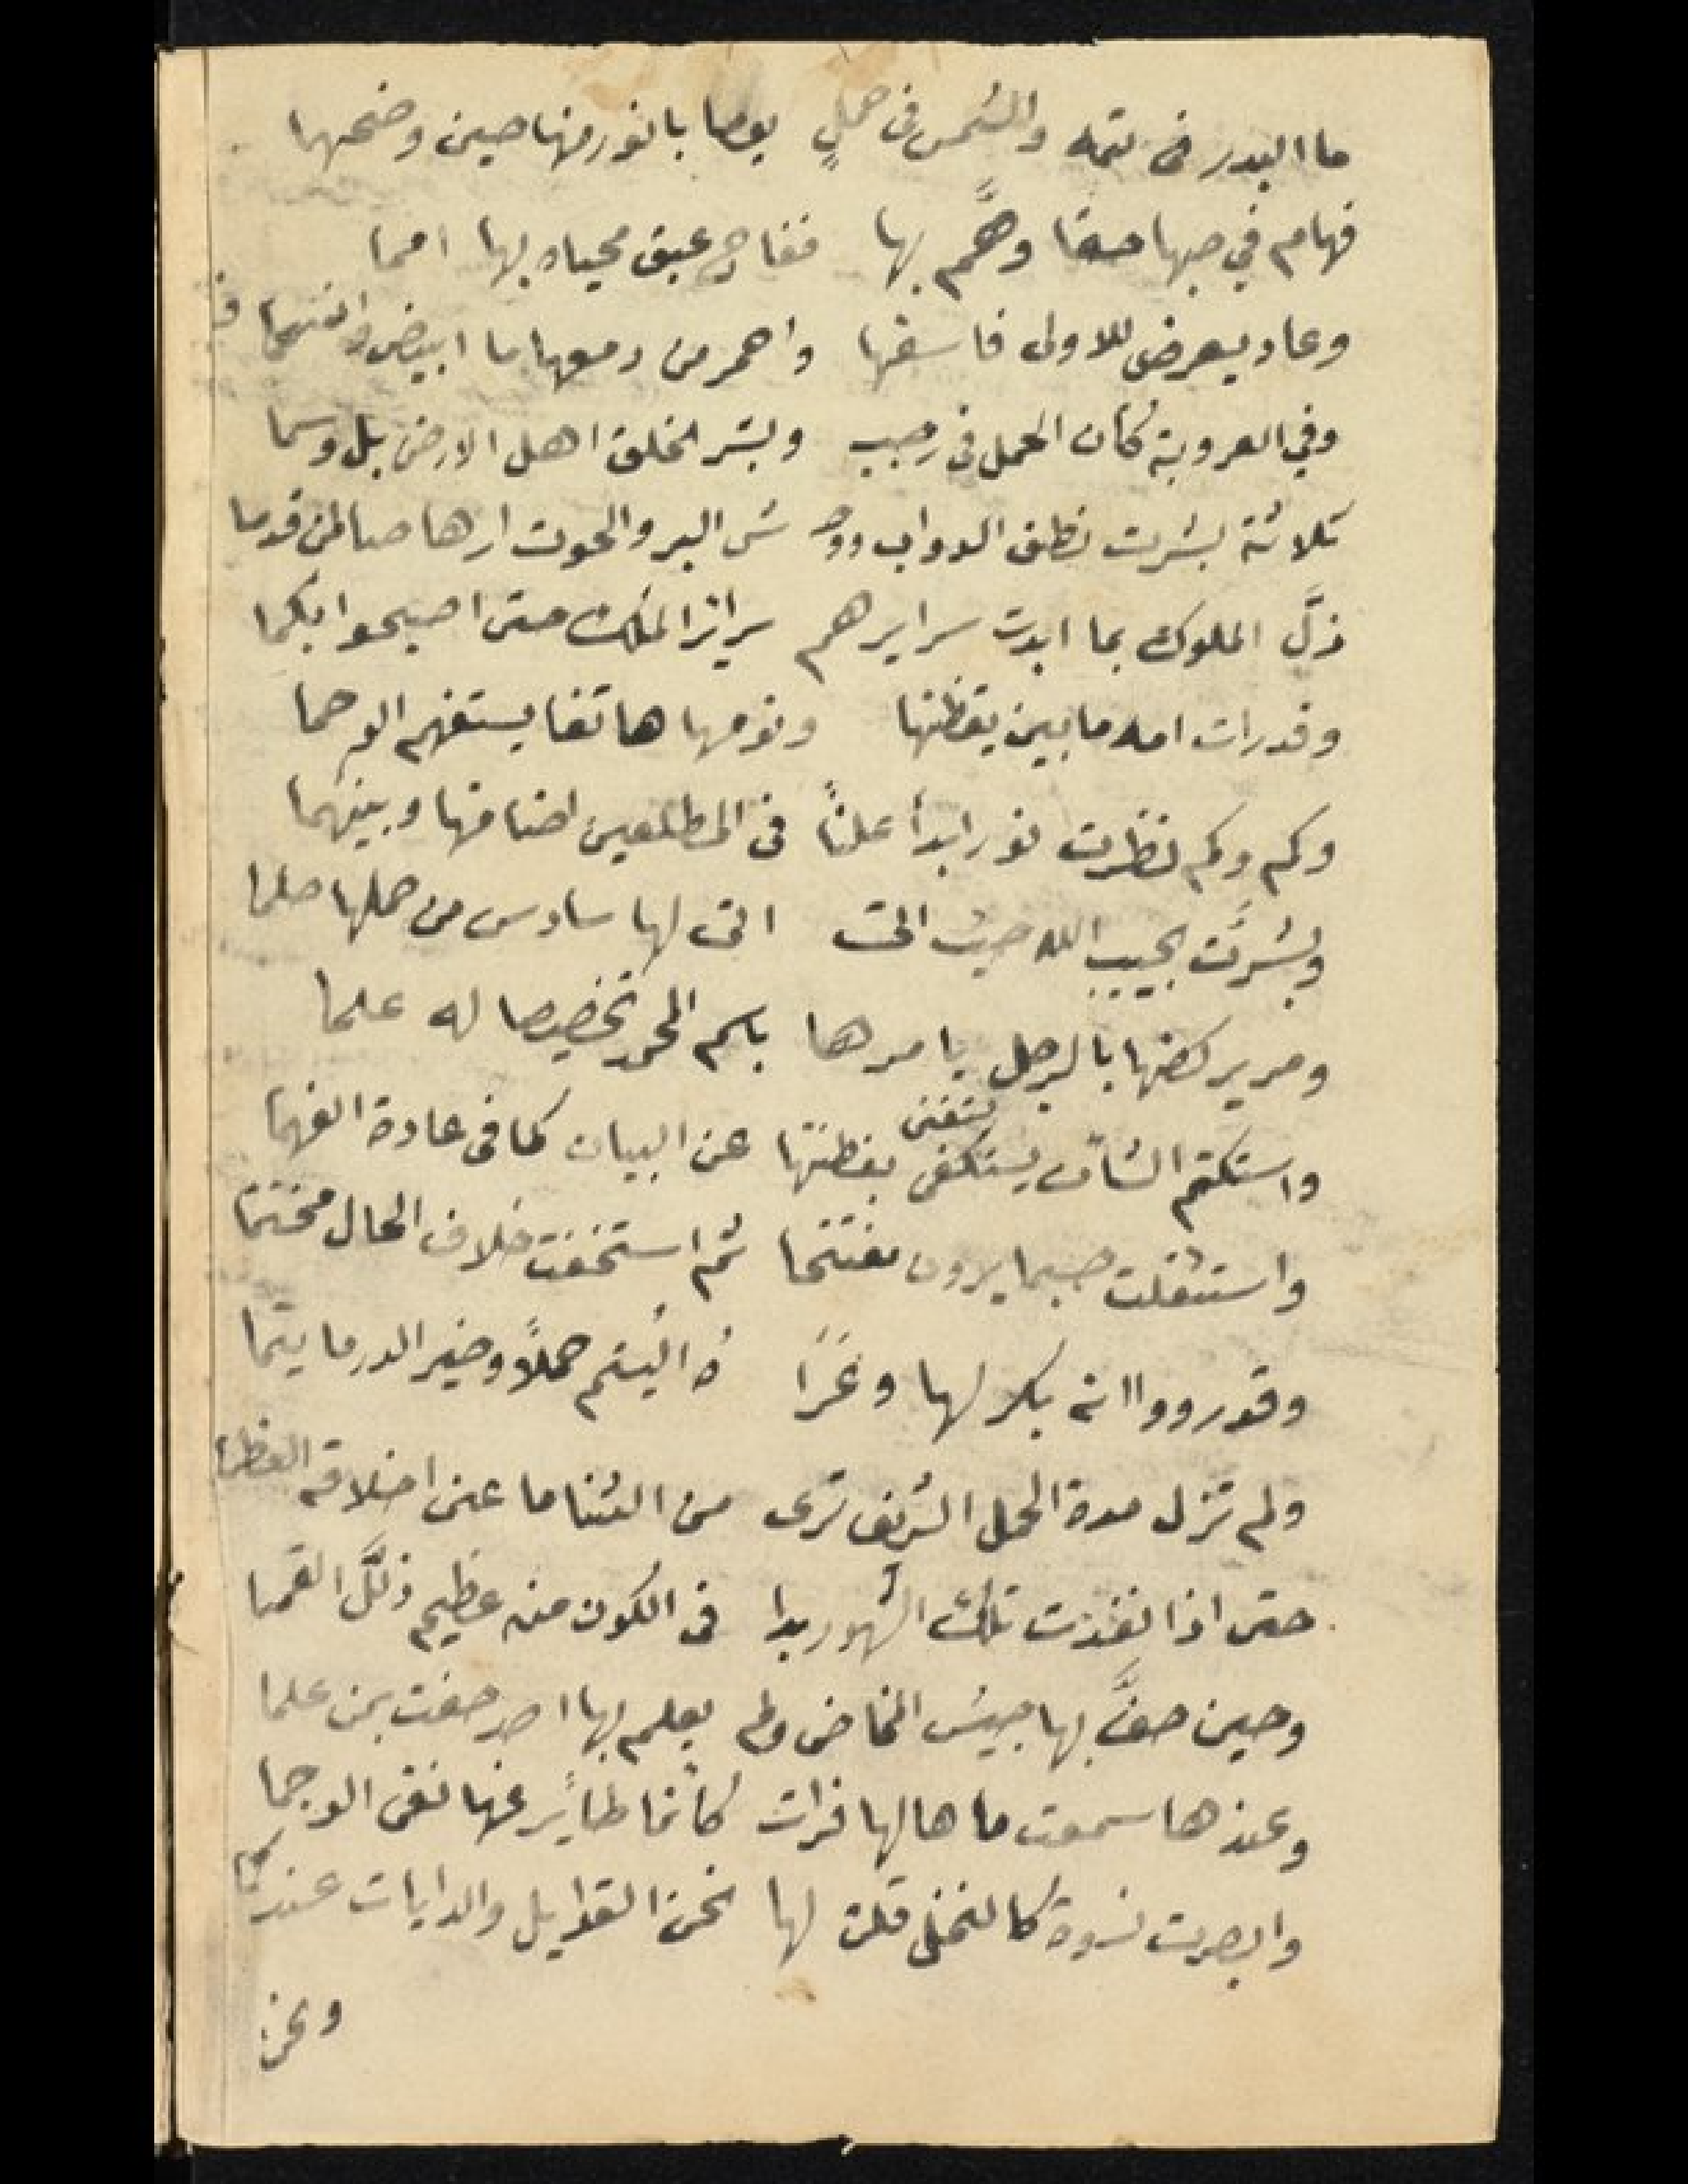 ما البدر في تمه والشمس في حملٍ يوما بانور منها حين وضحها
فهام في حبها حقا وهَّم بها ففاح عبق محياه بها
وعاد يعرض للاولى فاسقها واحمر من دمعها ما ابيض وانسجما
وفي العروبة كان الحمل في رجب وبشر الخلق اهل الارض بل وسما
ثلاثة بشرت نطق الدواب ووحـ ـش البر والحوت ارهاصا لمن قدما
ذلَّ الملوك بما ابدت سرايرهم سرائر الملك حتى اصبحوا بكما
وقد رات امه ما بين يقظتها ونومها هاتفا يستفهم الوحما
وكم وكم نظرت نورا بدأ علناً في المطلعين اضا منها وبينهما
وبُشرَّت بحبيب الله حيث اتى لها سادس من حملها حلما
ومر يركضها بالرجل يامرها باسم المحمد تخصيصا له علما
يستغني
واستكتم الشأن يستكفى بفطنتها عن البيان كما في عادة الفهما
واستثقلت حينما يرون مفتتحا ثم استخفت خلاف الحال مختتما
وقد رووا انه بكر لها وغَزَا ه اليُتم حملاً وخير الدر ما يتما
ولم تزل مدة الحمل الشريف ترى من الثنا ما عن اخلاقه العظما
حتى اذا نفذت تلك الشهور بدا في الكون منه عظيم ذلَّل القمما
وحين حفَّ بها جيش المخاض ولم يعلم بها احد حفت بمن علما
وعندها سمعت ما هالها فرات كأنما طائرٌ عنها نفى الوجما
وابصرت نسوة كالنخل قلن لها نحن القوابل والدايات عندكما
ونحن